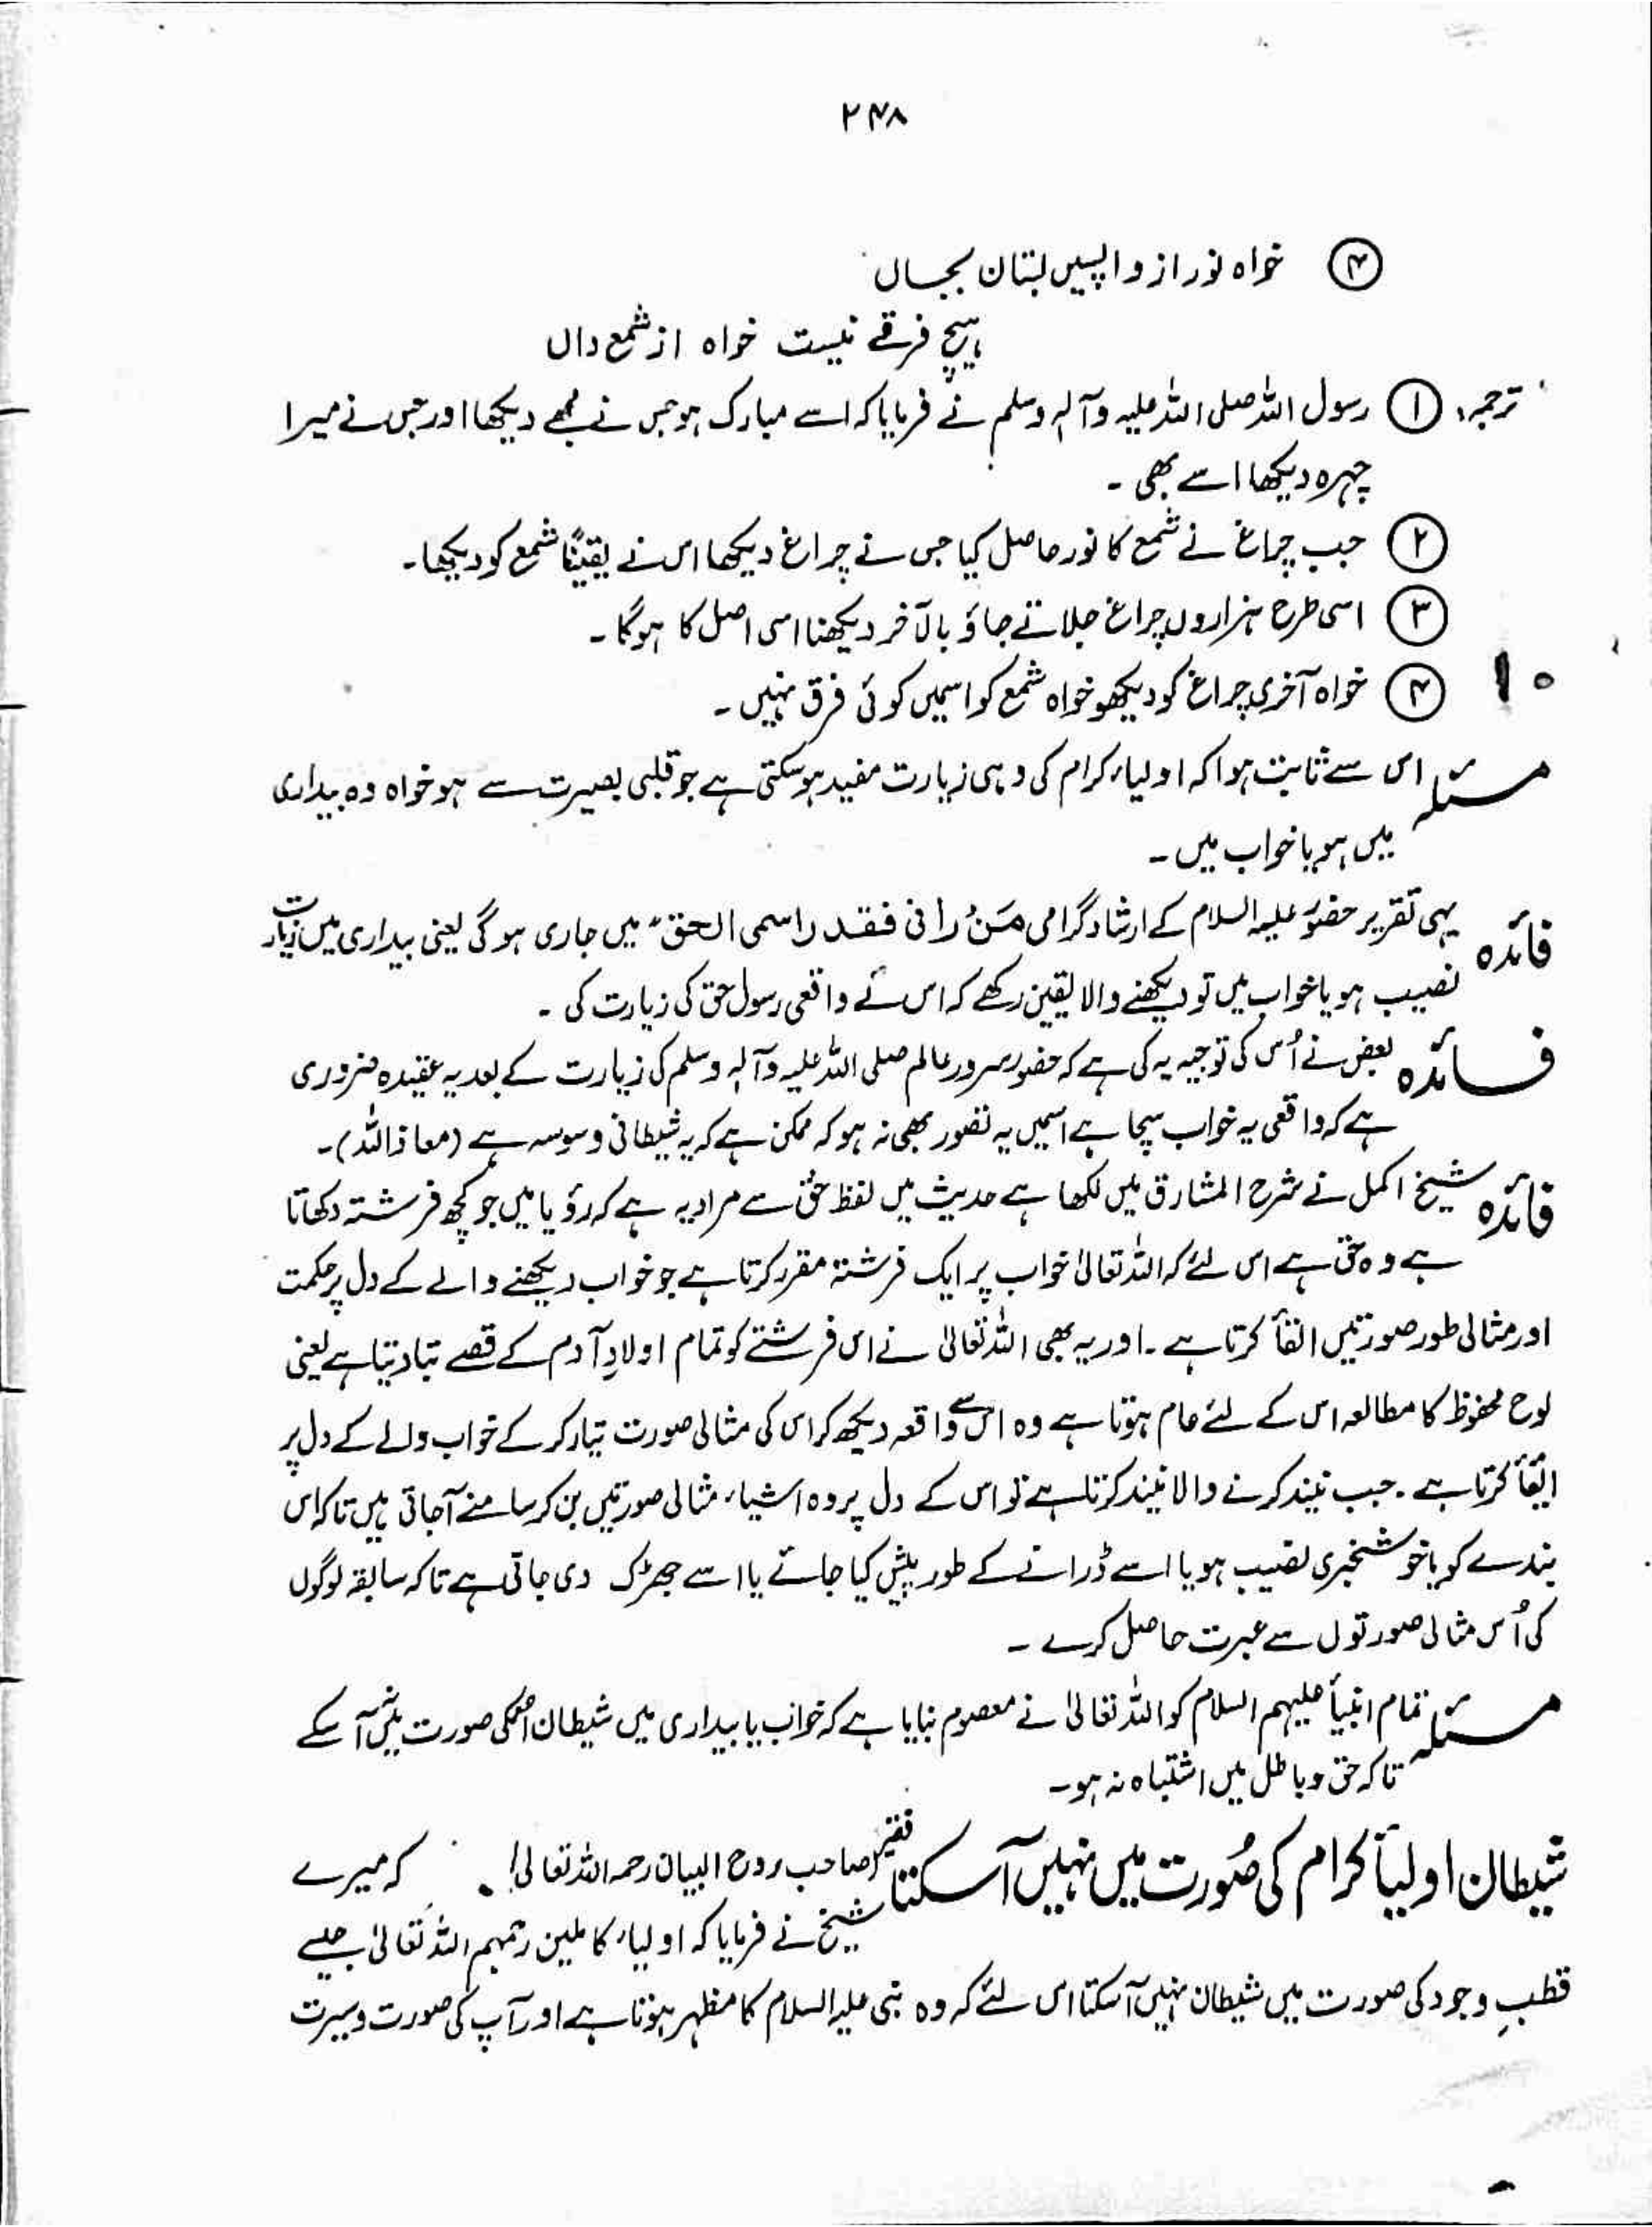 ۲۴۸
④ خواہ نور از واپسیں بستان بجساں
ہیچ فرقے نیست خواہ از شمع داں
ترجمہ: ① رسول اللہ صلی اللہ علیہ وآلہ وسلم نے فرمایا کہ اسے مبارک ہو جس نے مجھے دیکھا اور جس نے میرا
چہرہ دیکھا اسے بھی ۔
② جب چراغ نے شمع کا نور حاصل کیا جس نے چراغ دیکھا اس نے یقیناً شمع کو دیکھا۔
③ اسی طرح ہزاروں چراغ جلاتے جاؤ بالآخر دیکھنا اسی اصل کا ہوگا ۔
④ خواہ آخری چراغ کو دیکھو خواہ شمع کو اسمیں کوئی فرق نہیں ۔
مسئلہ اس سے ثابت ہوا کہ اولیاء کرام کی وہی زیارت مفید ہو سکتی ہے جو قلبی بصیرت سے ہو خواہ وہ بیداری
میں ہو یا خواب میں ۔
فائدہ یہی تقریر حضور علیہ السلام کے ارشاد گرامی مَنْ رانی فقد راسمی الحق میں جاری ہوگی یعنی بیداری میں زیارت
نصیب ہو یا خواب میں تو دیکھنے والا یقین رکھے کہ اس نے واقعی رسول حق کی زیارت کی ۔
فائدہ بعض نے اُس کی توجیہ یہ کی ہے کہ حضور سرور عالم صلی اللہ علیہ وآلہ وسلم کی زیارت کے بعد یہ عقیدہ ضروری
ہے کہ واقعی یہ خواب سچا ہے اسمیں یہ تصور بھی نہ ہو کہ ممکن ہے کہ یہ شیطانی وسوسہ ہے (معاذ اللہ)۔
فائدہ شیخ اکمل نے شرح المشارق میں لکھا ہے حدیث میں لفظ حق سے مراد یہ ہے کہ رؤیا میں جو کچھ فرشتہ دکھاتا
ہے وہ حق ہے اس لئے کہ اللہ تعالیٰ خواب پر ایک فرشتہ مقرر کرتا ہے جو خواب دیکھنے والے کے دل پر حکمت
اور مثالی طور صورتیں القأ کرتا ہے ۔ اور یہ بھی اللہ تعالیٰ نے اس فرشتے کو تمام اولادِ آدم کے قصے بتا دیتا ہے یعنی
لوح محفوظ کا مطالعہ اس کے لئے عام ہوتا ہے وہ اس سے واقعہ دیکھ کر اس کی مثالی صورت تیار کر کے خواب والے کے دل پر
القأ کرتا ہے ۔ جب نیند کرنے والا نیند کرتا ہے تو اس کے دل پر وہ اشیاء مثالی صورتیں بن کر سامنے آجاتی ہیں تا کہ اس
بندے کو یا خوشخبری نصیب ہو یا اسے ڈرانے کے طور پیش کیا جائے یا اسے جھڑک دی جاتی ہے تاکہ سابقہ لوگوں
کی اُس مثالی صورتوں سے عبرت حاصل کرے ۔
مسئلہ تمام انبیأ علیہم السلام کو اللہ تعالیٰ نے معصوم بنایا ہے کہ خواب یا بیداری میں شیطان انکی صورت میں نہیں آسکے
تاکہ حق وباطل میں اشتباہ نہ ہو ۔
شیطان اولیأ کرام کی صُورت میں نہیں آسکتا فقیر صاحب روح البیان رحمہ اللہ تعالیٰ! کہ میرے
شیخ نے فرمایا کہ اولیاء کاملین رحمہم اللہ تعالیٰ جیسے
قطبِ وجود کی صورت میں شیطان نہیں آسکتا اس لئے کہ وہ نبی علیہ السلام کا مظہر ہوتا ہے اور آپ کی صورت وسیرت